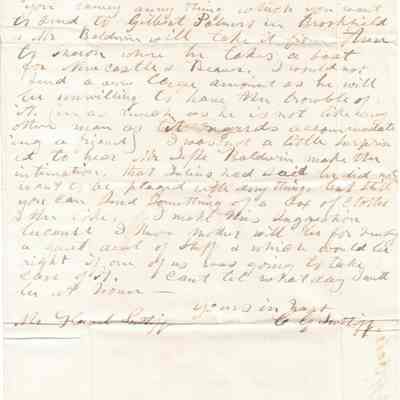 you any thing which you want
to send to Gilbert Palmers in Brookfield
& Mr Baldwin will take it from there
to Sharon where he takes a boat
for Newcastle & Beaver. I would not
send a very large amount as he will
be unwilling to have the trouble of
it (in as much as he is not like any
other man as it regards accommodate
ing a friend) I was not a little surpris
ed to hear Mr Baldwin make the
intimation, that Julius had said he did not
want to be plagued with any thing but that
you can send something of a box of Clothes
I make this suggestion
because I know mother will be for
a great deal of stuff & which would be
right if one of us was going to take
care of it. I cant tel what day I will
be at home —
yours in hast